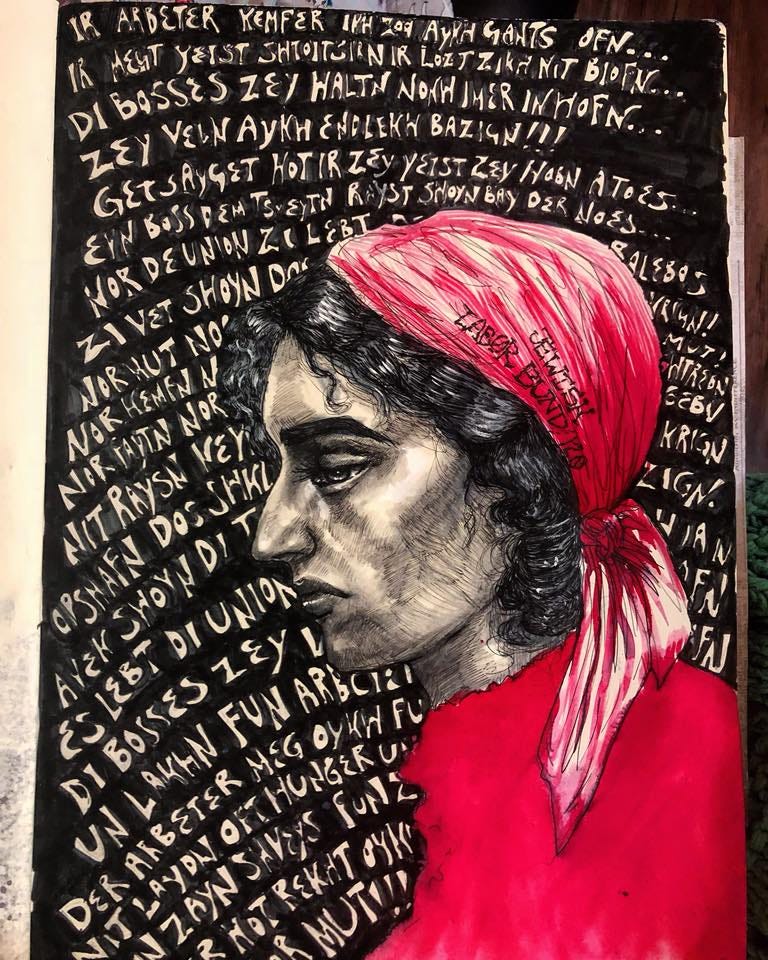 IR ARBETER KEMFER IKH ZOG AYKH GANTS OFN...
IR MEGT YETST SHTOLTSIRN IR LOZT ZIKH NIT BLOFN...
DI BOSSES ZEY HALTN NOKH IMER IN HOFN...
ZEY VELN AYKH ENDLEKH BAZIGN!!!
GETSAYGET HOT IR ZEY YETST ZEY HOBN A TOES...
EYN BOSS DEM TSVEYTN RAYST SHOYN BAY DER NOES...
NOR DE UNION ZI LEBT
BALEBOS
ZI VET SHOYN DOS
KRIGN!!
NOR MUT NO
MUT!
NOR KEMFN N
SHTREBN
NOR HALTN NOR
GEBN
NIT RAYSN VEY
KRIGN
OPSHAFN DOS SHKL
ZIGN!
AVEK SHOYN DI T
ES LEBT DI UNION
OFN
DI BOSSES ZEY
FN
UN LAKHN FUN ARBETER
DER ARBETER MEG OYKH FU
NIT LAYDN OFT HUNGER U
N ZAYN SHVEYS FUN Z
R HOT REKHT OYKH
OR MUT!!!
JEWISH
LABOR BUND '20